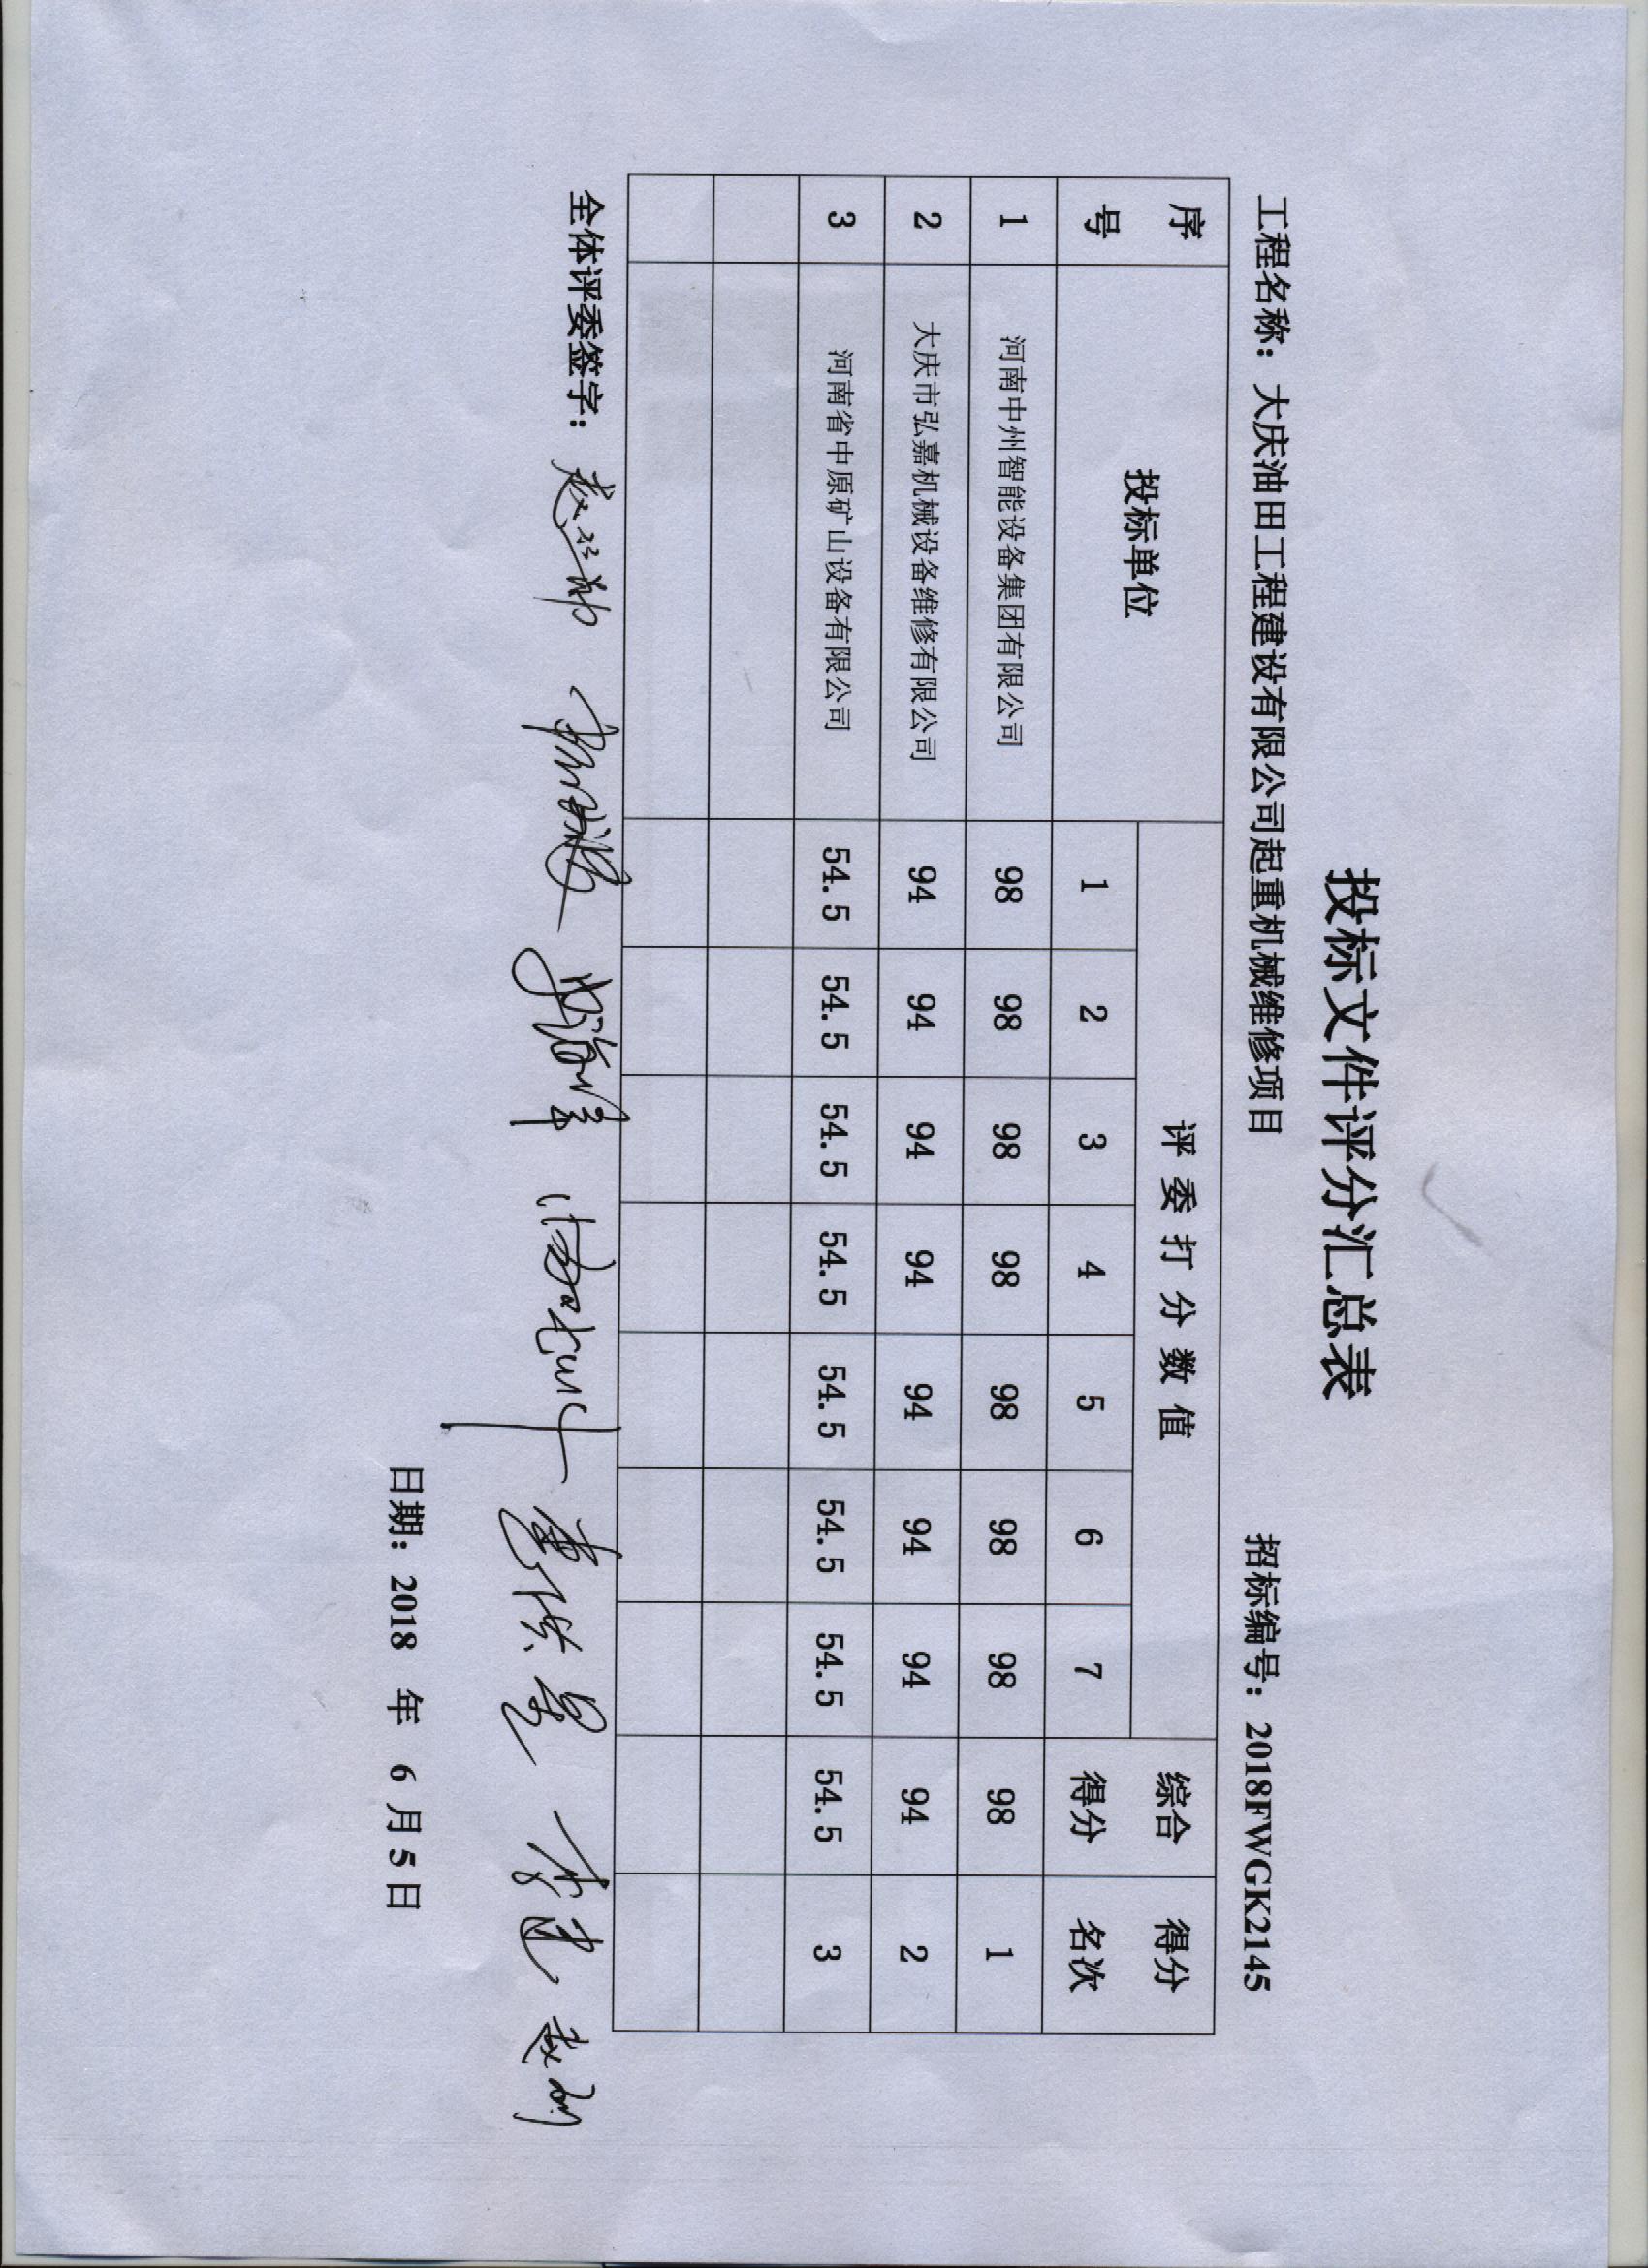 投标文件评分汇总表
工程名称：大庆油田工程建设有限公司起重机械维修项目 招标编号：2018FWGK2145
序号 投标单位 评委打分数值 综合得分 得分名次
1 2 3 4 5 6 7
1 河南中州智能设备集团有限公司 98 98 98 98 98 98 98 98 1
2 大庆市弘嘉机械设备维修有限公司 94 94 94 94 94 94 94 94 2
3 河南省中原矿山设备有限公司 54.5 54.5 54.5 54.5 54.5 54.5 54.5 54.5 3
全体评委签字：
日期：2018 年 6 月 5 日